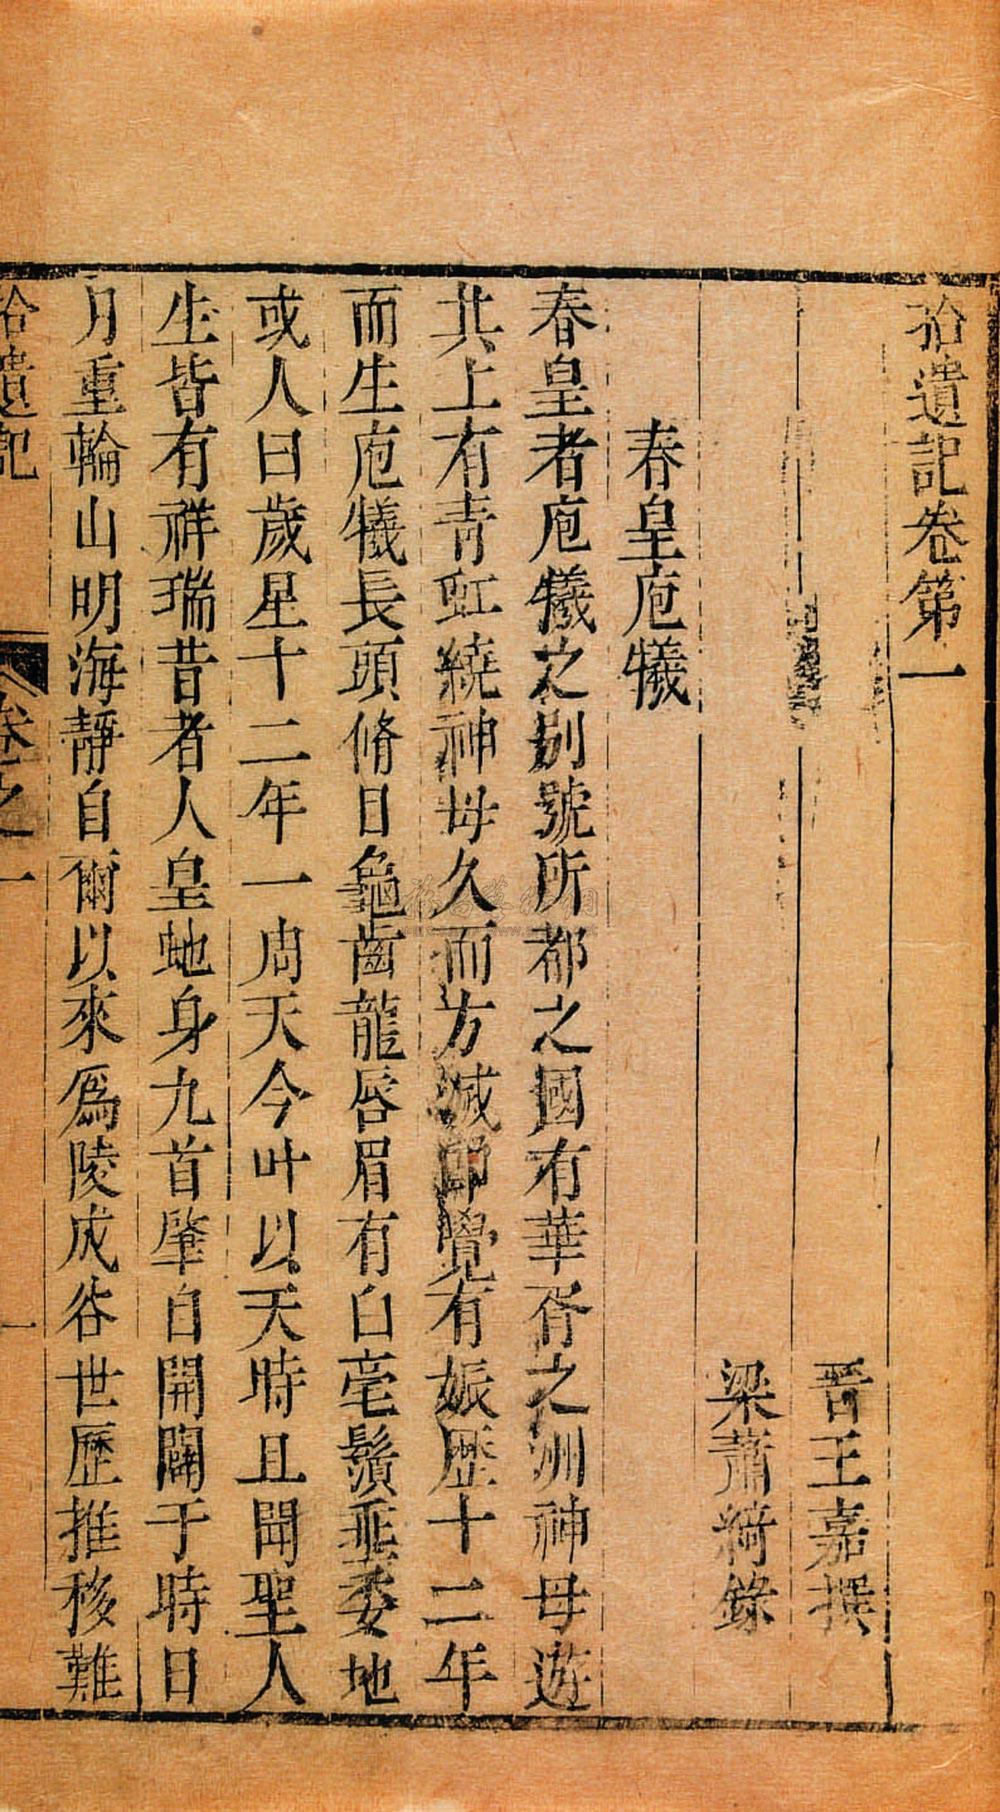 拾遺記卷第一
晉王嘉撰
梁蕭綺錄
春皇庖犧
春皇者庖犧之別號所都之國有華胥之洲神母遊
其上有青虹繞神母久而方滅即覺有娠歷十二年
而生庖犧長頭脩目龜齒龍唇眉有白毫鬚垂委地
或人曰歲星十二年一周天今叶以天時且聞聖人
生皆有祥瑞昔者人皇虵身九首肇自開闢于時日
月重輪山明海靜自爾以來爲陵成谷世歷推移難
拾遺記
卷之一
一